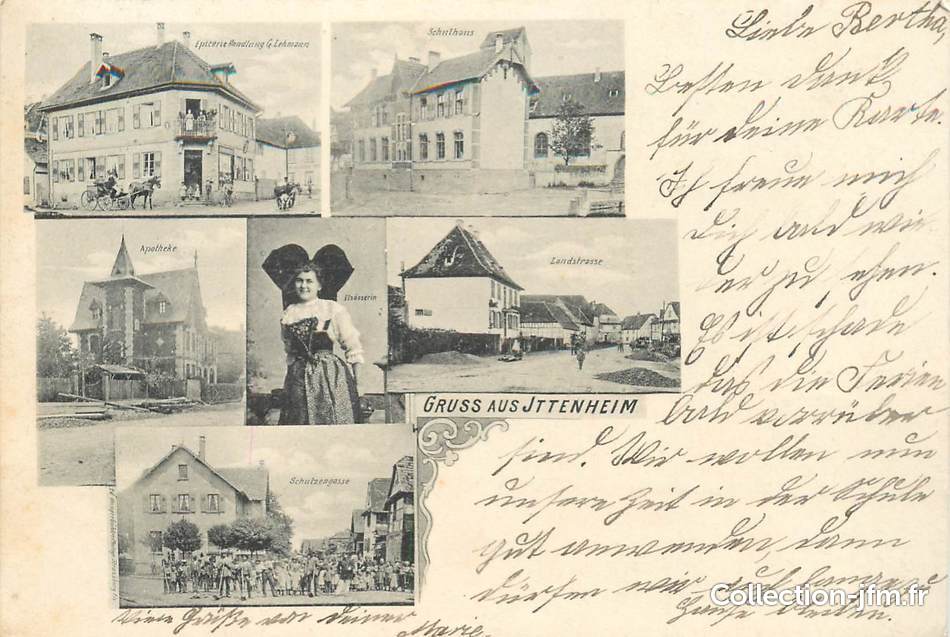 Epicerie Handlung G. Lehmann
Schulhaus
Apotheke
Elsässerin
Landstrasse
GRUSS AUS JTTENHEIM
Schutzengasse
Liebe Bertha,
Besten Dank
für deine Karte.
Ich freue mich
Dich bald wie-
der zu sehen.
Es ist schade
daß die Ferien
bald vorrüber
sind. Wir wollen nun
unsere Zeit in der Schule
gut anwenden, dann
dürfen wir auf lange zu
Hause bleiben.
Viele Grüße von deiner
Marie.
Collection-jfm.fr